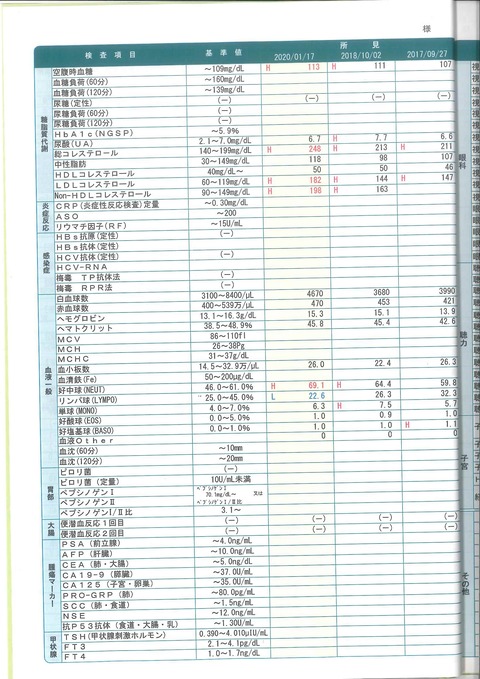 様
検査項目 基準値 所見
2020/01/17 2018/10/02 2017/09/27
糖脂質代謝
空腹時血糖 ～109mg/dL H 113 H 111 107
血糖負荷(60分) ～160mg/dL
血糖負荷(120分) ～139mg/dL
尿糖(定性) (－) (－) (－) (－)
尿糖負荷(60分) (－)
尿糖負荷(120分) (－)
HbA1c(NGSP) ～5.9%
尿酸(UA) 2.1～7.0mg/dL 6.7 H 7.7 6.6
総コレステロール 140～199mg/dL H 248 H 213 H 211
中性脂肪 30～149mg/dL 118 98 107
HDLコレステロール 40mg/dL～ 50 50 46
LDLコレステロール 60～119mg/dL H 182 H 144 H 147
Non-HDLコレステロール 90～149mg/dL H 198 H 163
炎症反応
CRP(炎症性反応検査)定量 ～0.30mg/dL
ASO ～200
リウマチ因子(RF) ～15U/mL
感染症
HBs抗原(定性) (－)
HBs抗体(定性)
HCV抗体(定性) (－)
HCV-RNA
梅毒 TP抗体法 (－)
梅毒 RPR法 (－)
血液一般
白血球数 3100～8400/μL 4670 3680 3990
赤血球数 400～539万/μL 470 453 421
ヘモグロビン 13.1～16.3g/dL 15.3 15.1 13.9
ヘマトクリット 38.5～48.9% 45.8 45.4 42.6
MCV 86～110fl
MCH 26～38Pg
MCHC 31～37g/dL
血小板数 14.5～32.9万/μL 26.0 22.4 26.3
血清鉄(Fe) 50～200μg/dL
好中球(NEUT) 46.0～61.0% H 69.1 H 64.4 59.8
リンパ球(LYMPO) 25.0～45.0% L 22.6 26.3 32.3
単球(MONO) 4.0～7.0% 6.3 H 7.5 5.7
好酸球(EOS) 0.0～5.0% 1.0 0.9 1.0
好塩基球(BASO) 0.0～1.0% 1.0 1.0 H 1.1
血液Other 0 0 0
血沈(60分) ～10mm
血沈(120分) ～20mm
胃部
ピロリ菌 (－)
ピロリ菌(定量) 10U/mL未満
ペプシノゲンⅠ ペプシノゲンⅠ 70.1mg/dL～ 又は
ペプシノゲンⅡ ペプシノゲンⅠ/Ⅱ比
ペプシノゲンⅠ/Ⅱ比 3.1～
大腸
便潜血反応1回目 (－) (－) (－) (－)
便潜血反応2回目 (－) (－) (－) (－)
腫瘍マーカー
PSA(前立腺) ～4.0ng/mL
AFP(肝臓) ～10.0ng/mL
CEA(肺・大腸) ～5.0ng/dL
CA19-9(膵臓) ～37.0U/mL
CA125(子宮・卵巣) ～35.0U/mL
PRO-GRP(肺) ～80.0pg/mL
SCC(肺・食道) ～1.5ng/mL
NSE ～12.0ng/mL
抗P53抗体(食道・大腸・乳) ～1.30U/mL
甲状腺
TSH(甲状腺刺激ホルモン) 0.390～4.010μIU/mL
FT3 2.1～4.1pg/dL
FT4 1.0～1.7ng/dL
眼科
聴力
子宮
その他